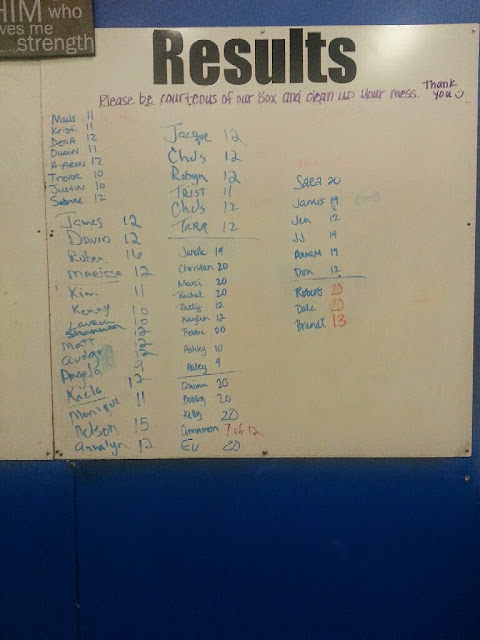 HIM who
ves me
strength
Results
Please be courteous of our Box and clean up your mess. Thank you
Kristi 11
DENA 12
Dwain 11
A-Aron 12
Trevor 10
Justin 10
12
James 12
DAVID 12
Ruben 16
MARISSA 12
Kim 11
Kenny 10
Lauren
Shannon
Matt
Angela
Kaela 12
Monique 11
Nelson 15
Annalyn 12
Jacque 12
Chris 12
Robyn 12
Trist 11
Chris 12
Tara 12
19
Christan 20
Marci 20
Rachel 20
Patty 12
Kaylin 12
20
Ashley 10
Haley 9
Quinn 20
Bobby 20
Kelly 20
Annamon 7 of 12
EV 20
Sara 20
James 19
Jen 12
JJ 19
19
Don 12
Roberts 20
Dale 20
Brandi 13